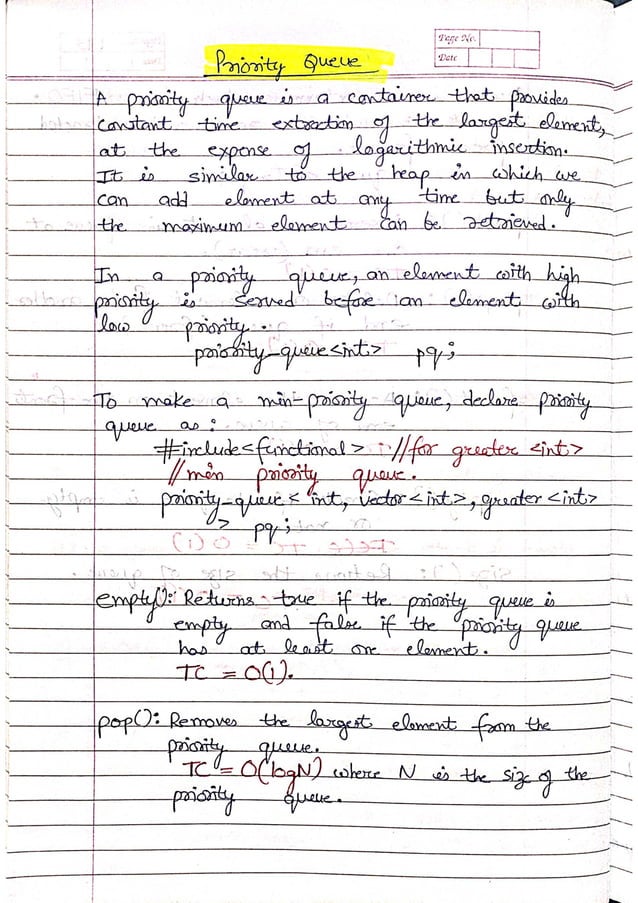 Priority Queue
Page No.
Date
A priority queue is a container that provides
constant time extraction of the largest element,
at the expense of logarithmic insertion.
It is similar to the heap in which we
can add element at any time but only
the maximum element can be retrieved.
In a priority queue, an element with high
priority is served before an element with
low priority.
priority_queue<int> pq;
To make a min-priority queue, declare priority
queue as:
#include<functional> //for greater <int>
//min priority queue.
priority_queue< int, vector<int>, greater<int>
> pq;
empty(): Returns true if the priority queue is
empty and false if the priority queue
has at least one element.
TC = O(1).
pop(): Removes the largest element from the
priority queue.
TC = O(logN) where N is the size of the
priority queue.